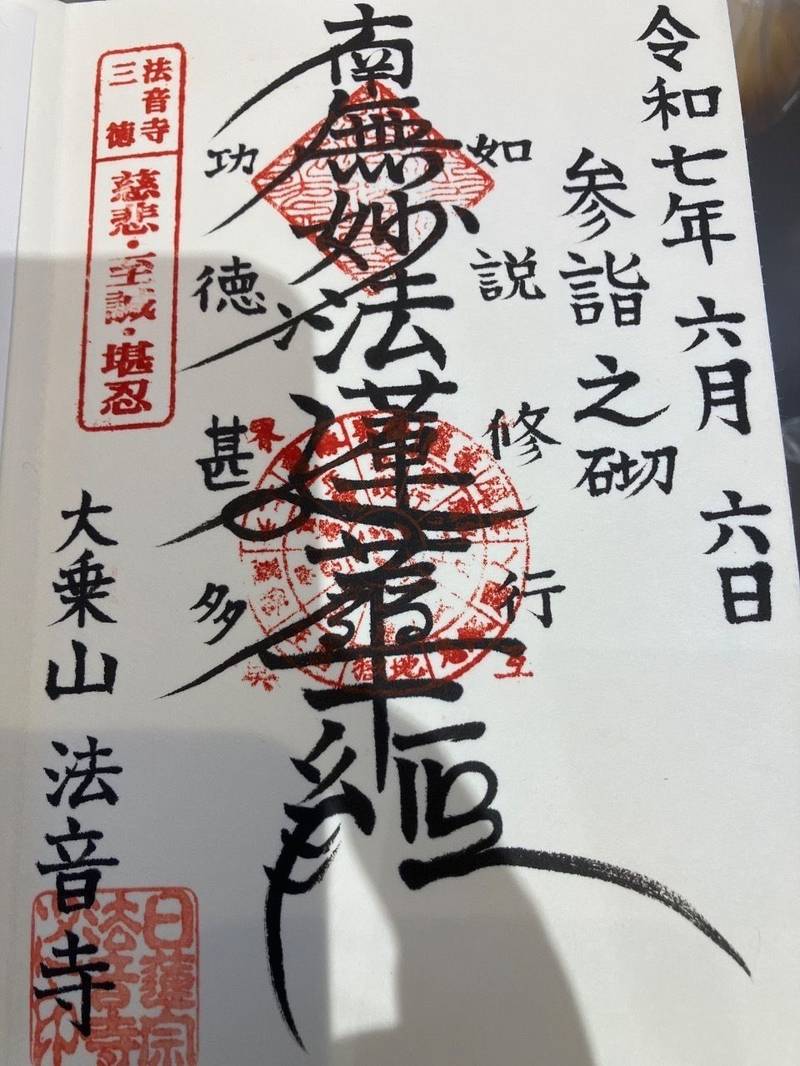 令和七年 六月 六日
参詣之砌
如説修行
南無妙法蓮華経
功徳甚多
法音寺
三徳
慈悲・至誠・堪忍
大乗山 法音寺
日蓮宗
法音寺